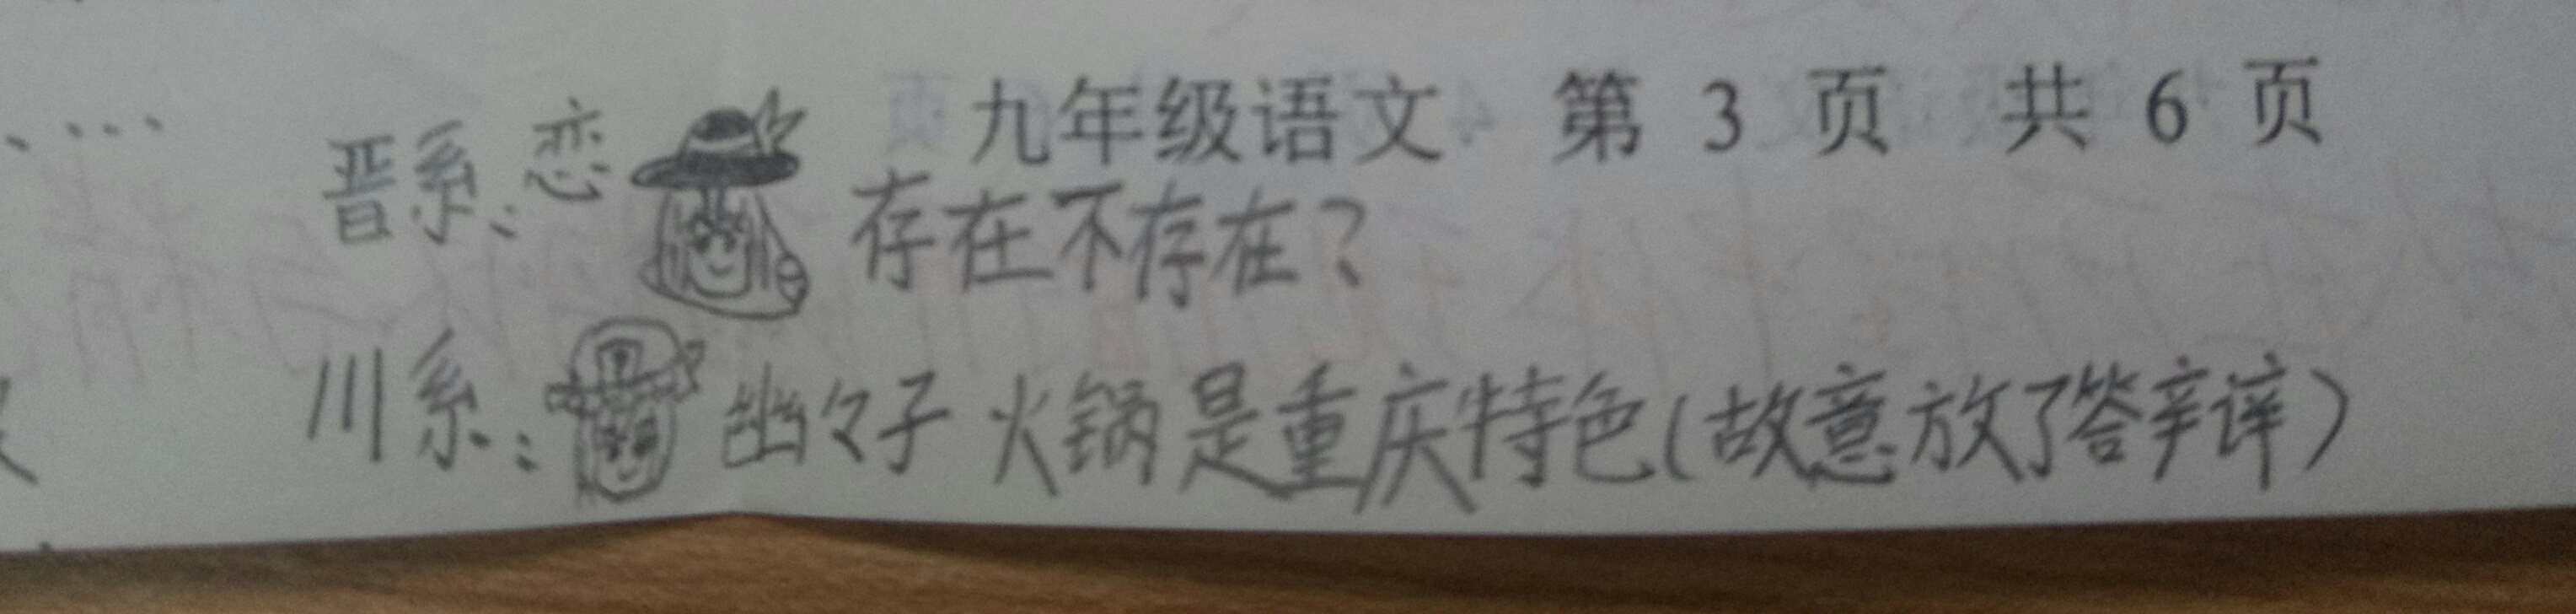 九年级语文 第 3 页 共 6 页
晋系：恋 存在不存在？
川系： 幽々子 火锅是重庆特色（故意放了答辩）